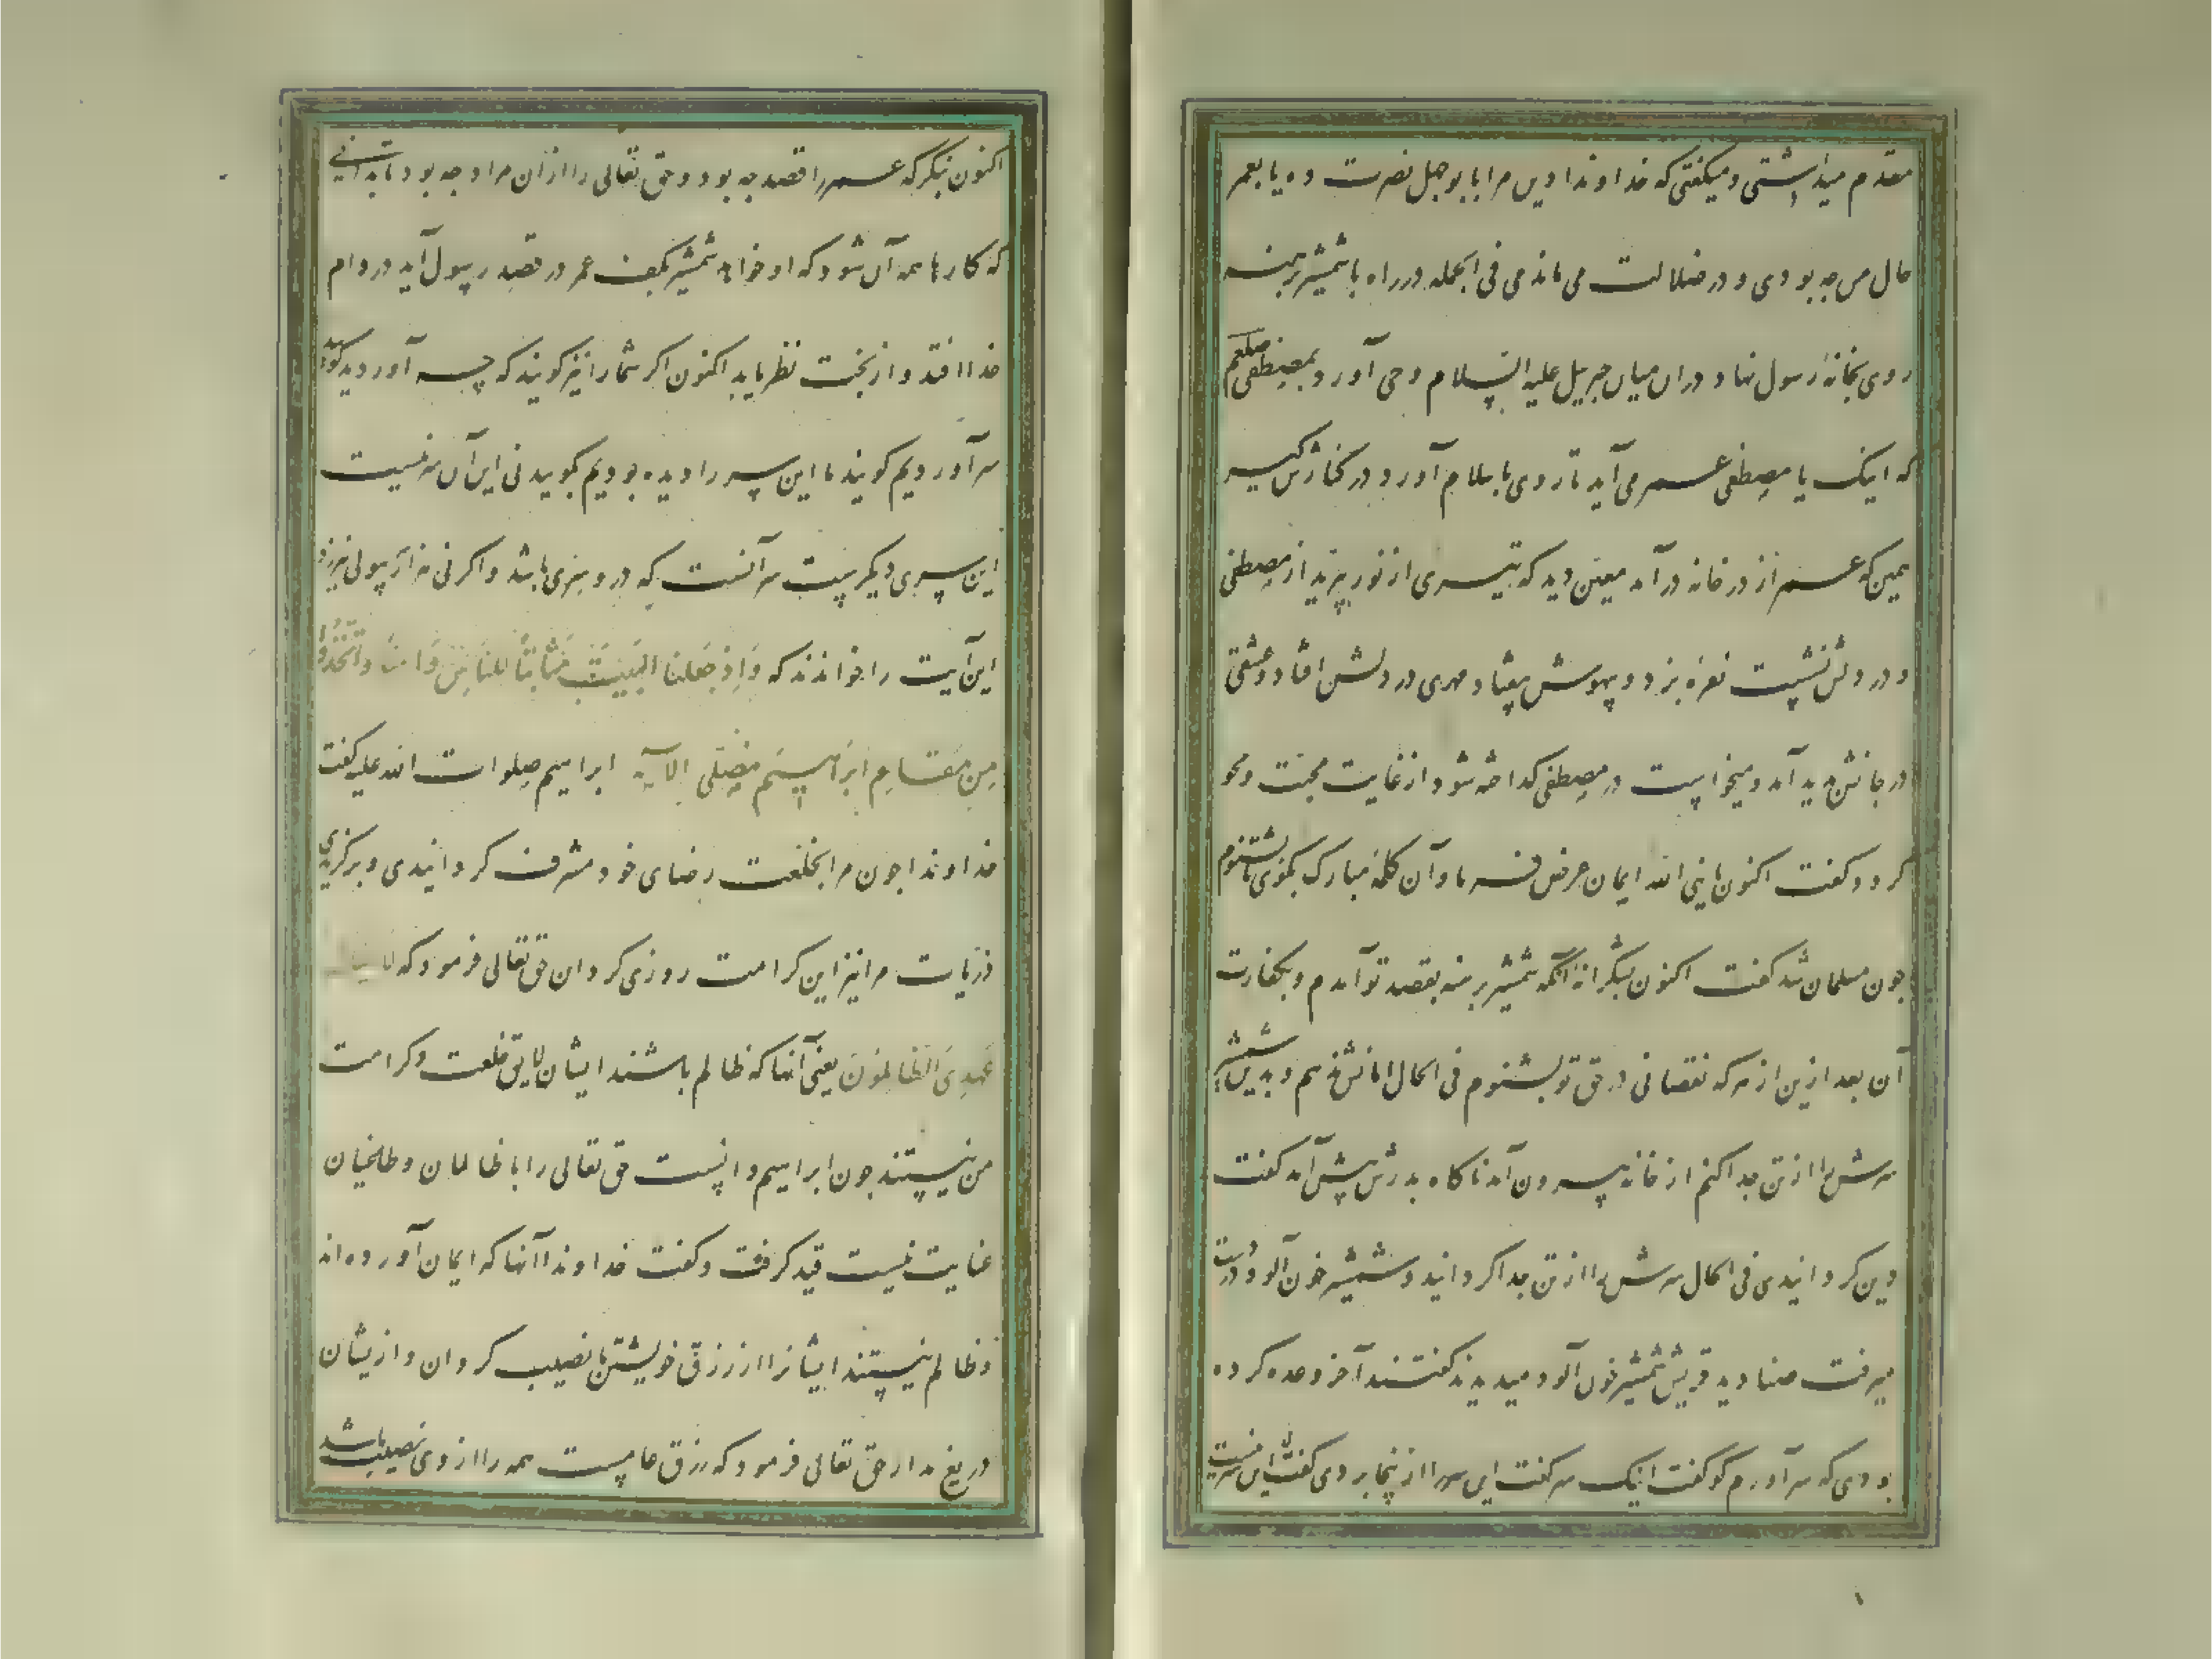 مقدم میداشتی و میگفتی که خداوندا دین مرا بابوجهل نصرت ده یا بعمر
حال من چه بودی و در ضلالت می ماندمی فی الجمله در راه با شمشیر برهنه
روی بخانهٔ رسول نهاد در ان میان جبریل علیه السلام وحی آورد بمصطفی صلعم
که اینک یا مصطفی عمر می آید تا روی باسلام آورد در کنارش گیر
همین که عمر از در خانه درآمد معین دید که تیری از نور بپرید از مصطفی
و در دلش نشست نعره بزد و بیهوش بیفتاد مهری در دلش افتاد و عشقی
در جانش پدید آمد و میخواست در مصطفی گداخته شود از غایت محبت و محو
گردد گفت اکنون یا نبی الله ایمان عرض فرما و آن کلمهٔ مبارک بگوی تا بشنوم
چون مسلمان شد گفت اکنون بشکرانهٔ آنکه شمشیر برهنه بقصد تو آمدم و بکفارت
آن بعد ازین از هر که نقصانی در حق تو بشنوم فی الحال امانش ندهم و بدین شمشیر
سرش را از تن جدا کنم از خانه بیرون آمد ناگاه پدرش پیش آمد گفت
دین گردانیدی فی الحال سرش را از تن جدا گردانید و شمشیر خون آلود در دست
میرفت صنادید قریش شمشیر خون آلود میدیدند گفتند آخر وعده کرده
بودی که سر آورم کو گفت اینک سر گفت این سر را ازینجا بردی گفت نی این سریست
اکنون بنگر که عمر را قصد چه بود و حق تعالی را ازان مراد چه بود تا بدانی
که کارها همه آن شود که او خواهد شمشیر بکف عمر در قصد رسول آید در دام
خدا افتد و از بخت نظر یابد اکنون اگر شما را نیز گویند که چه آوردید گویید
سر آوردیم گویند ما این سر را دیده بودیم بگویید نی این آن سر نیست
این سری دیگرست سر آنست که درو سری باشد و اگر نی هزار سر پولی نیرزد
این آیت را خواندند که وَاِذ جَعَلنَا البَیتَ مَثَابَةً لِلنَّاسِ وَاَمنًا وَاتَّخِذُوا
مِن مَقَامِ اِبرَاهِیمَ مُصَلًّی الآیة ابراهیم صلوات الله علیه گفت
خداوندا چون مرا بخلعت رضای خود مشرف گردانیدی و برگزیدی
ذریات مرا نیز این کرامت روزی گردان حق تعالی فرمود که لا ینال
عَهدِی الظَّالِمُونَ یعنی آنها که ظالم باشند ایشان لایق خلعت و کرامت
من نیستند چون ابراهیم دانست حق تعالی را با ظالمان و طاغیان
عنایت نیست قید گرفت و گفت خداوندا آنها که ایمان آورده اند
و ظالم نیستند ایشانرا از رزق خویشتن با نصیب گردان و ازیشان
دریغ مدار حق تعالی فرمود که رزق عامست همه را از وی نصیب باشد